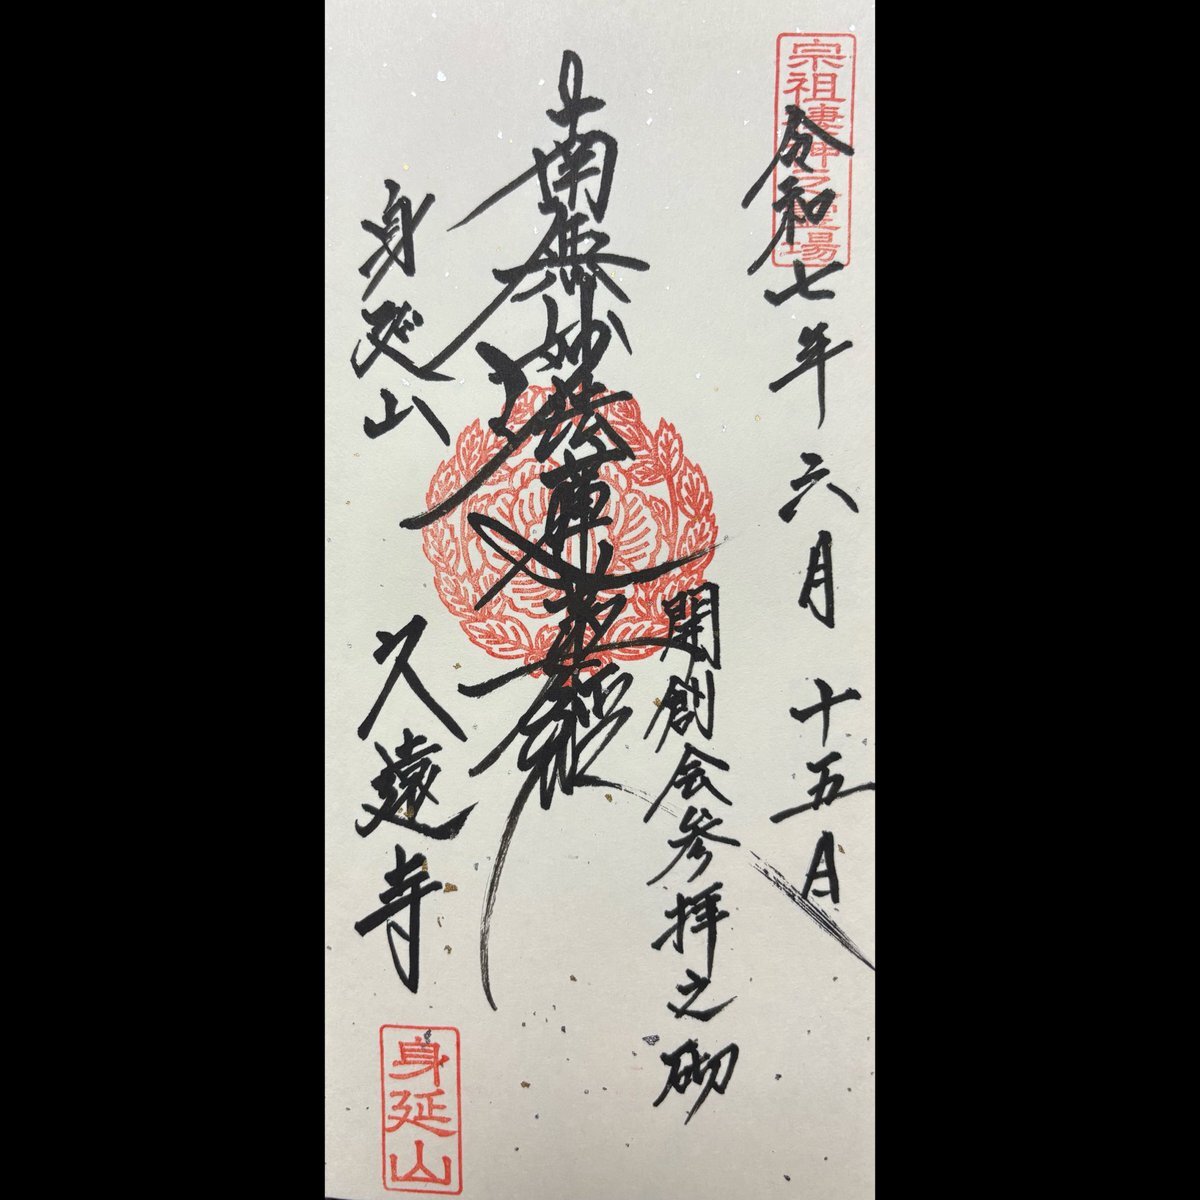 宗祖棲神之霊場
令和七年六月十五月
開創会参拝之砌
南無妙法蓮華経
身延山
久遠寺
身延山